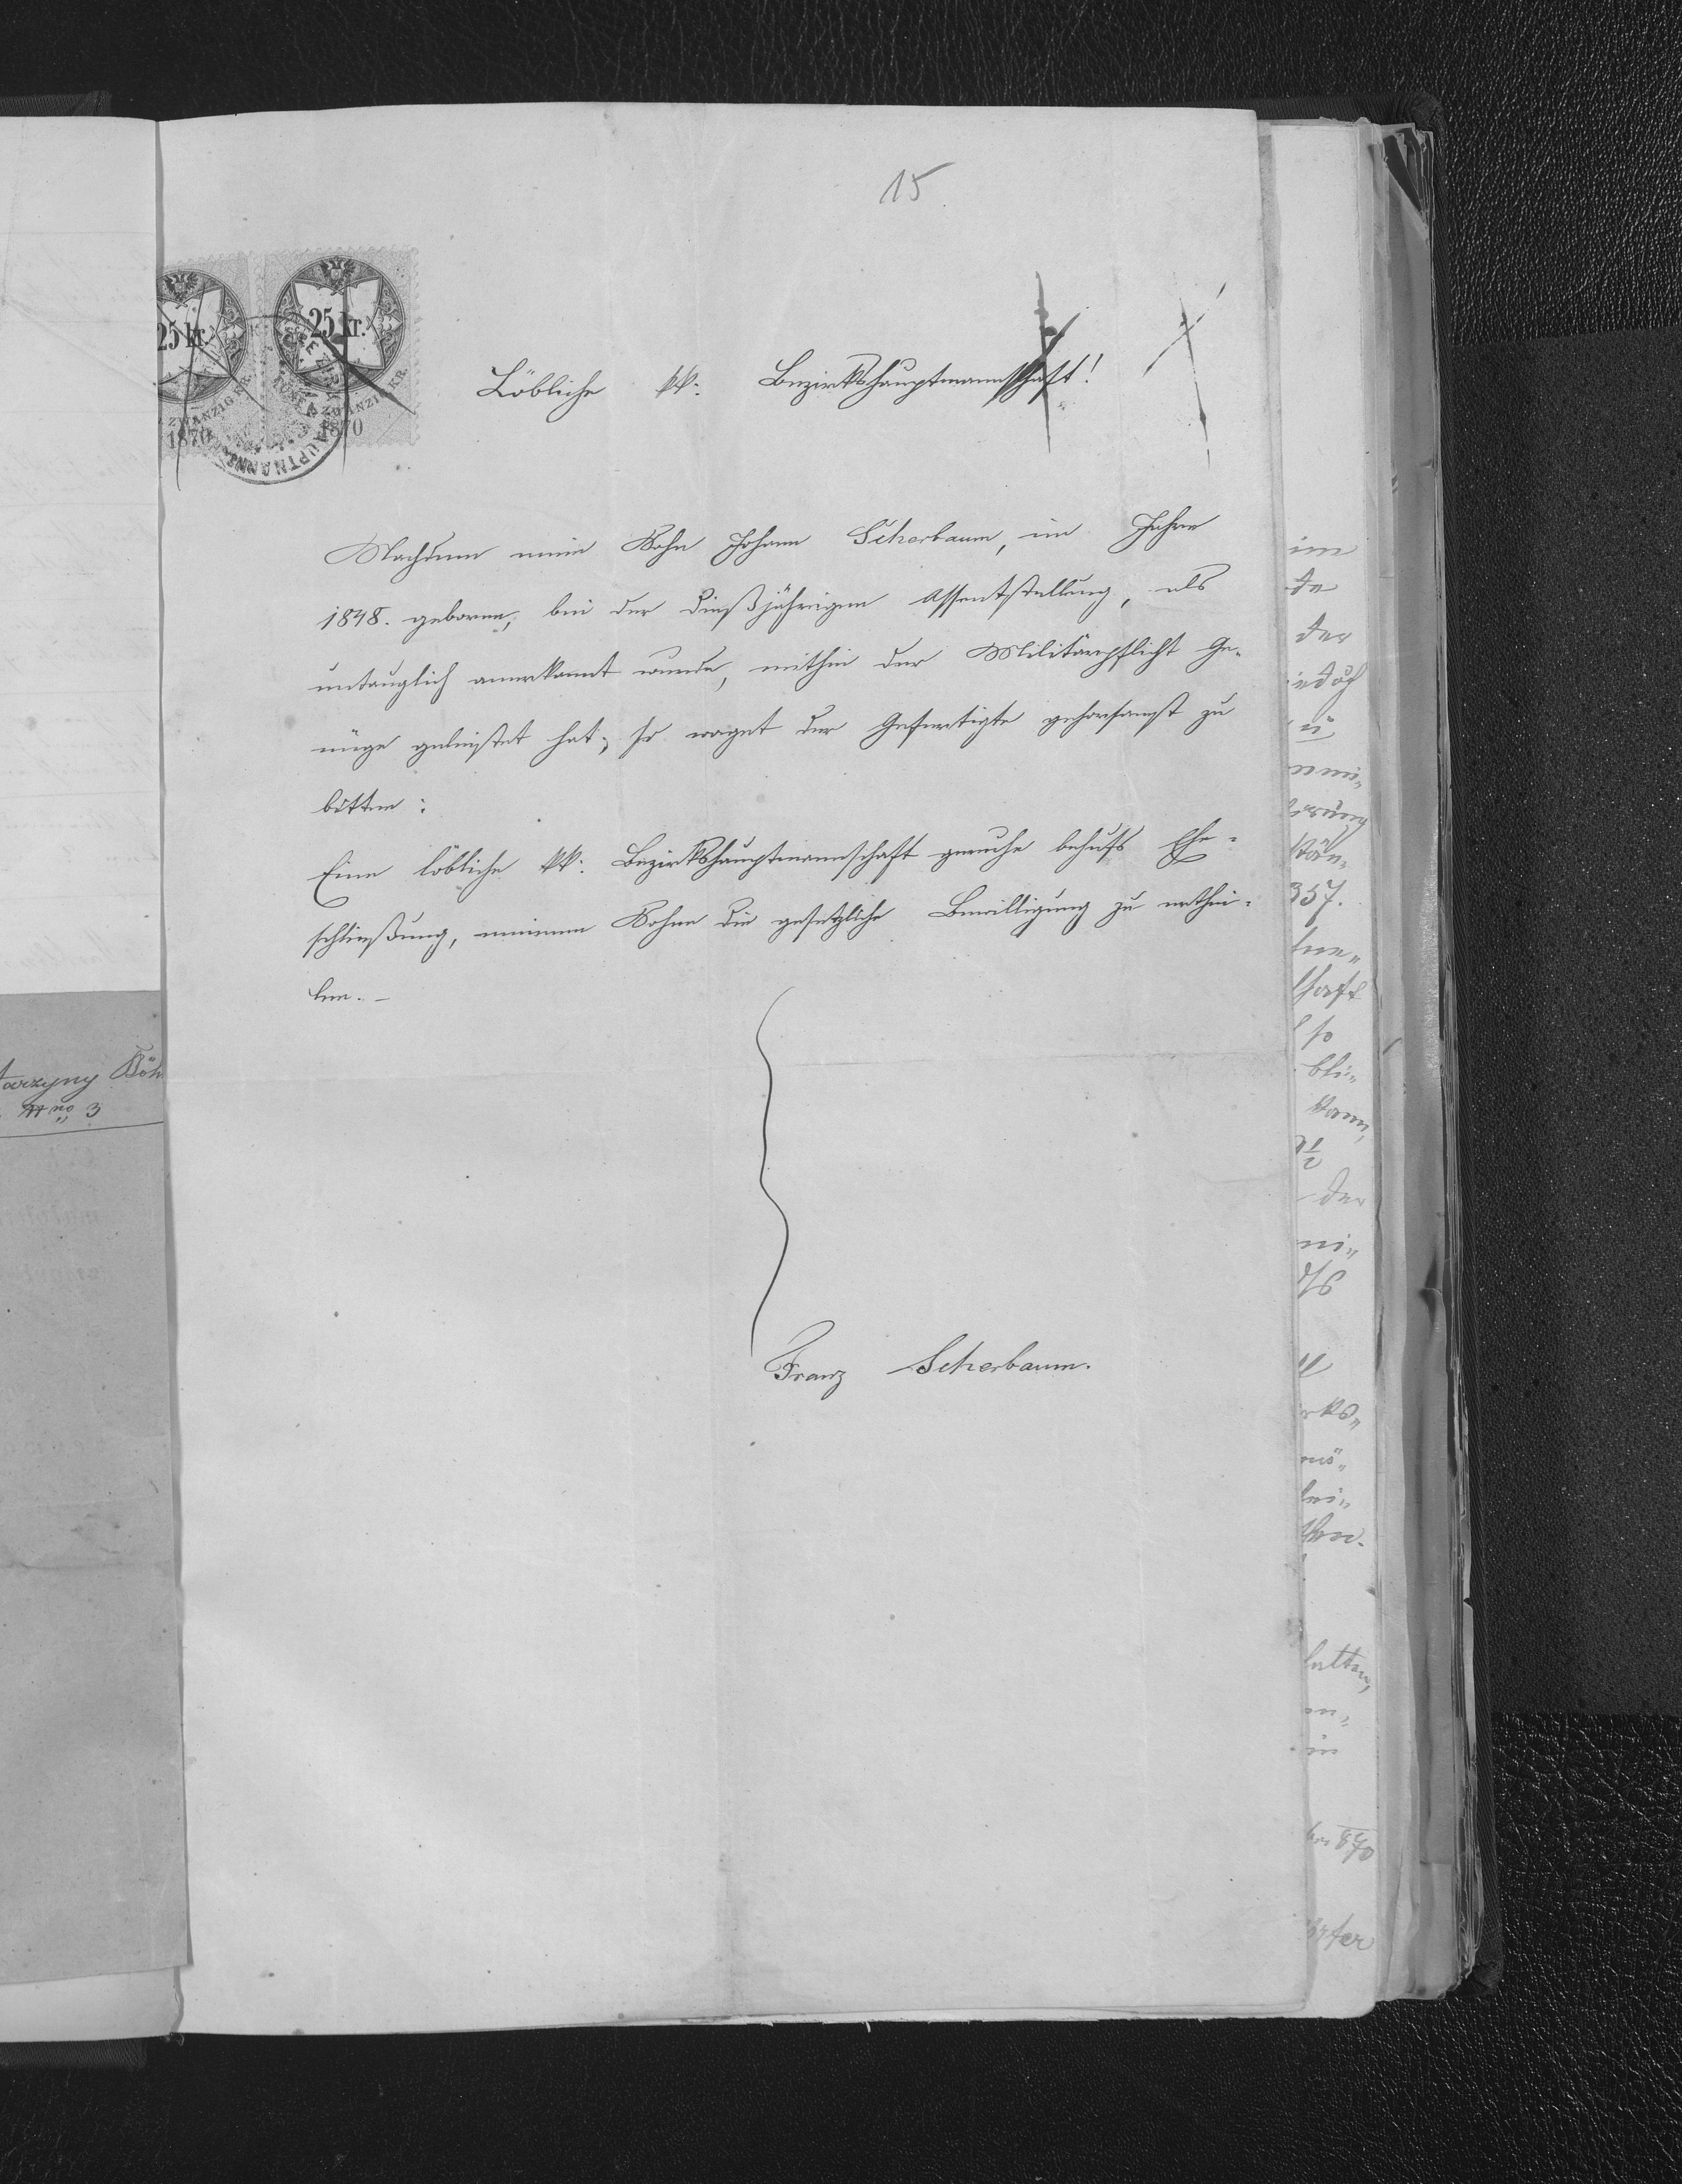 15
25 kr.
25 kr.
ZWANZIG
1870
1870
Löbliche kk: Bezirkshauptmannschaft!
Nachdem mein Sohn Johann Scherbaum, im Jahre
1848. geboren, bei der dießjährigen Assentstellung, als
untauglich anerkannt wurde, mithin der Militärpflicht Ge-
nüge geleistet hat; so waget der Gefertigte gehorsamst zu
bitten:
Eine löbliche kk: Bezirkshauptmannschaft geruhe behufs Ehe-
schließung, meinem Sohne die gesetzliche Bewilligung zu erthei-
len. –
Franz Scherbaum.
im
der
jedoch
357.
schaft
so
der